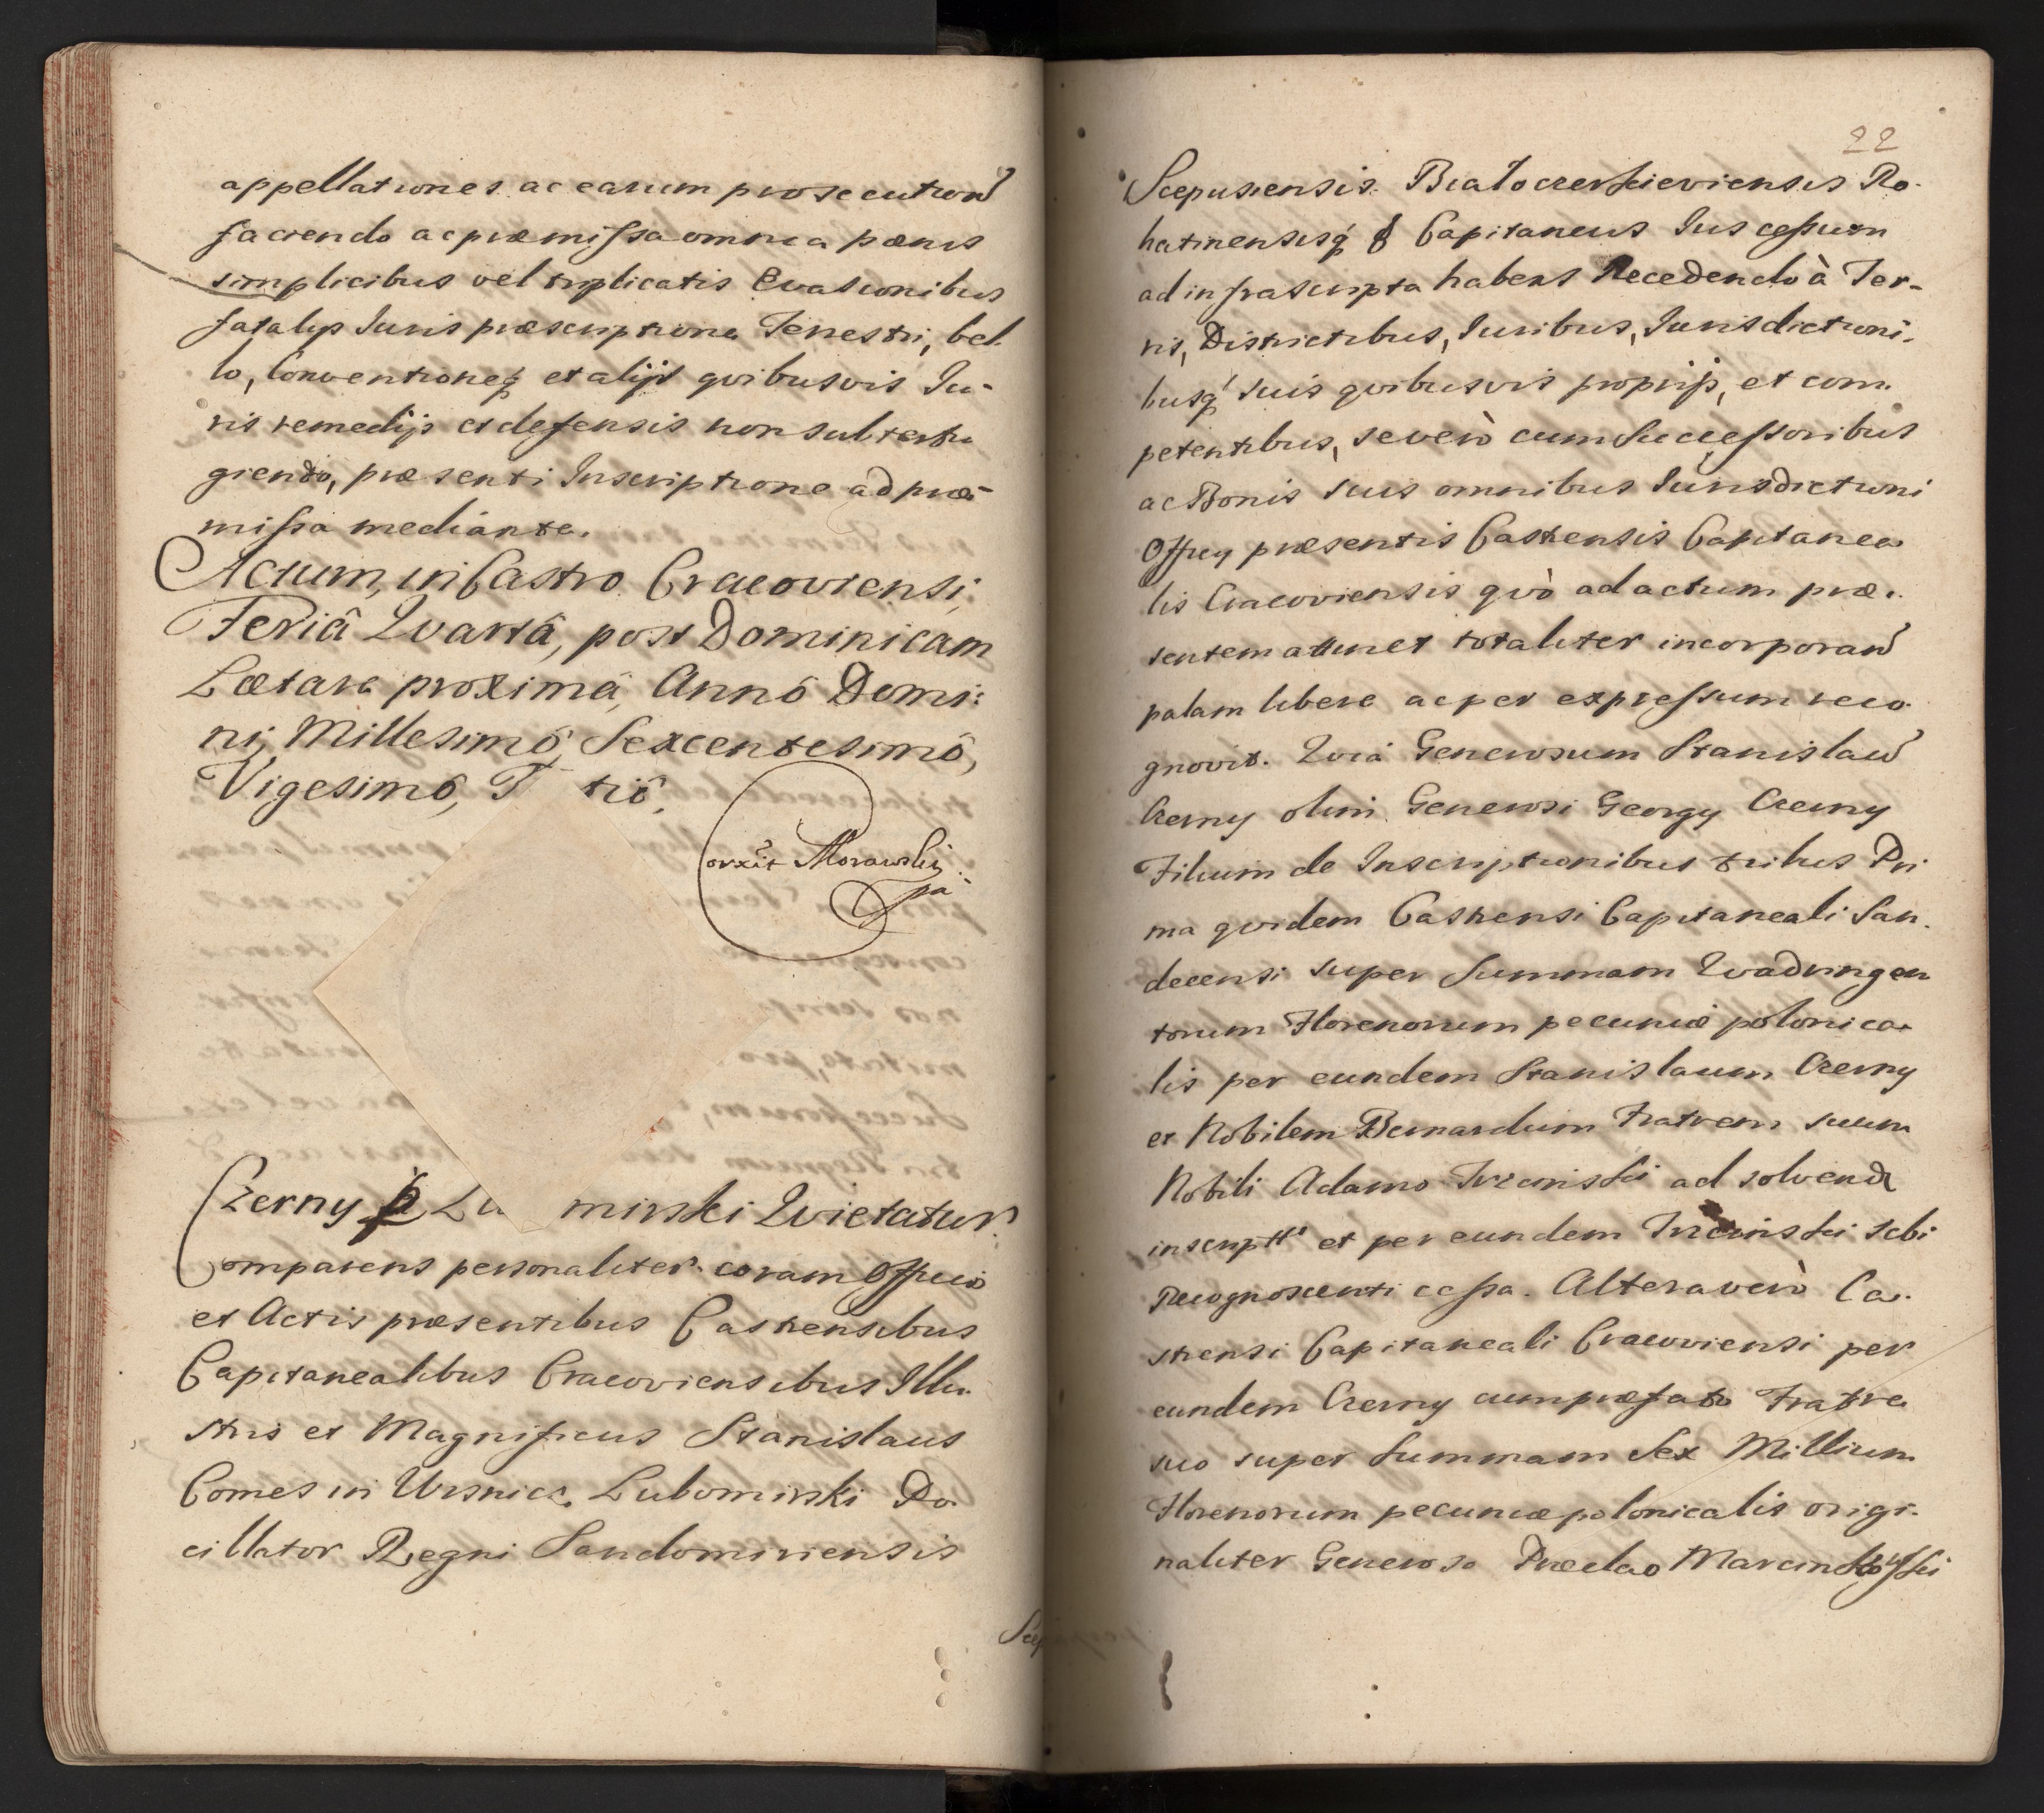 appellationes ac earum prosecution̄
faciendo ac præmissa omnia pænis
simplicibus vel triplicatis Evasionibus
fatalys Iuris præscriptione Terrestri, bel-
lo, Conventioneq́ et alijs qvibusvis Iu-
ris remedijs et defensis non subterfu
giendo, præsenti Inscriptione ad præ-
missa mediante.
Actum, in Castro Cracoviensi,
Feriâ Qvartâ, post Dominicam
Lætare proximâ, Annô Domi:
ni, Millesimô, Sexcentesimô,
Vigesimô, T tiô,
Corxit Morawski
pa
Czerny Lu mirski Qvietatur.
Comparens personaliter coram Officio
et Actis præsentibus Castrensibus
Capitanealibus Cracoviensibus Illu-
stris et Magnificus Stanislaus
Comes in Wisnicz Lubomirski Po-
cillator Regni Sandomiriensis
Scep
22
Scepusiensis. Białoczerkieviensis Ro-
hatinensisq́ & Capitaneus Ius cessum
ad infrascripta habens Recedendo à Ter-
ris, Districtibus, Iuribus, Iurisdictioni-
busq́ suis qvibusvis proprijs, et com-
petentibus, se verò cum Successoribus
ac Bonis suis omnibus Iurisdictioni
Officy præsentis Castrensis Capitanea
lis Cracoviensis qvò ad actum præ-
sentem attinet totaliter incorporan̄
palam libere ac per expressum reco-
gnovit. Qvia Generosum Stanislau̅
Czerny olim Generosi Georgy Czerny
Filium de Inscriptionibus tribus Pri
ma qvidem Castrensi Capitaneali San-
decensi super Summam Qvadringen
torum Florenorum pecuniæ polonica-
lis per eundem Stanislaum Czerny
et Nobilem Bernardum Fratrem suum
Nobili Adamo Trzcinski ad solvend
inscriptt' et per eundem Trzcinski sibi
Recognoscenti cessa. Altera verò Ca-
strensi Capitaneali Cracoviensi per
eundem Czerny cum præfato Fratre
suo super Summam Sex Millium
Florenorum pecuniæ polonicalis origi-
naliter Generoso Prædao